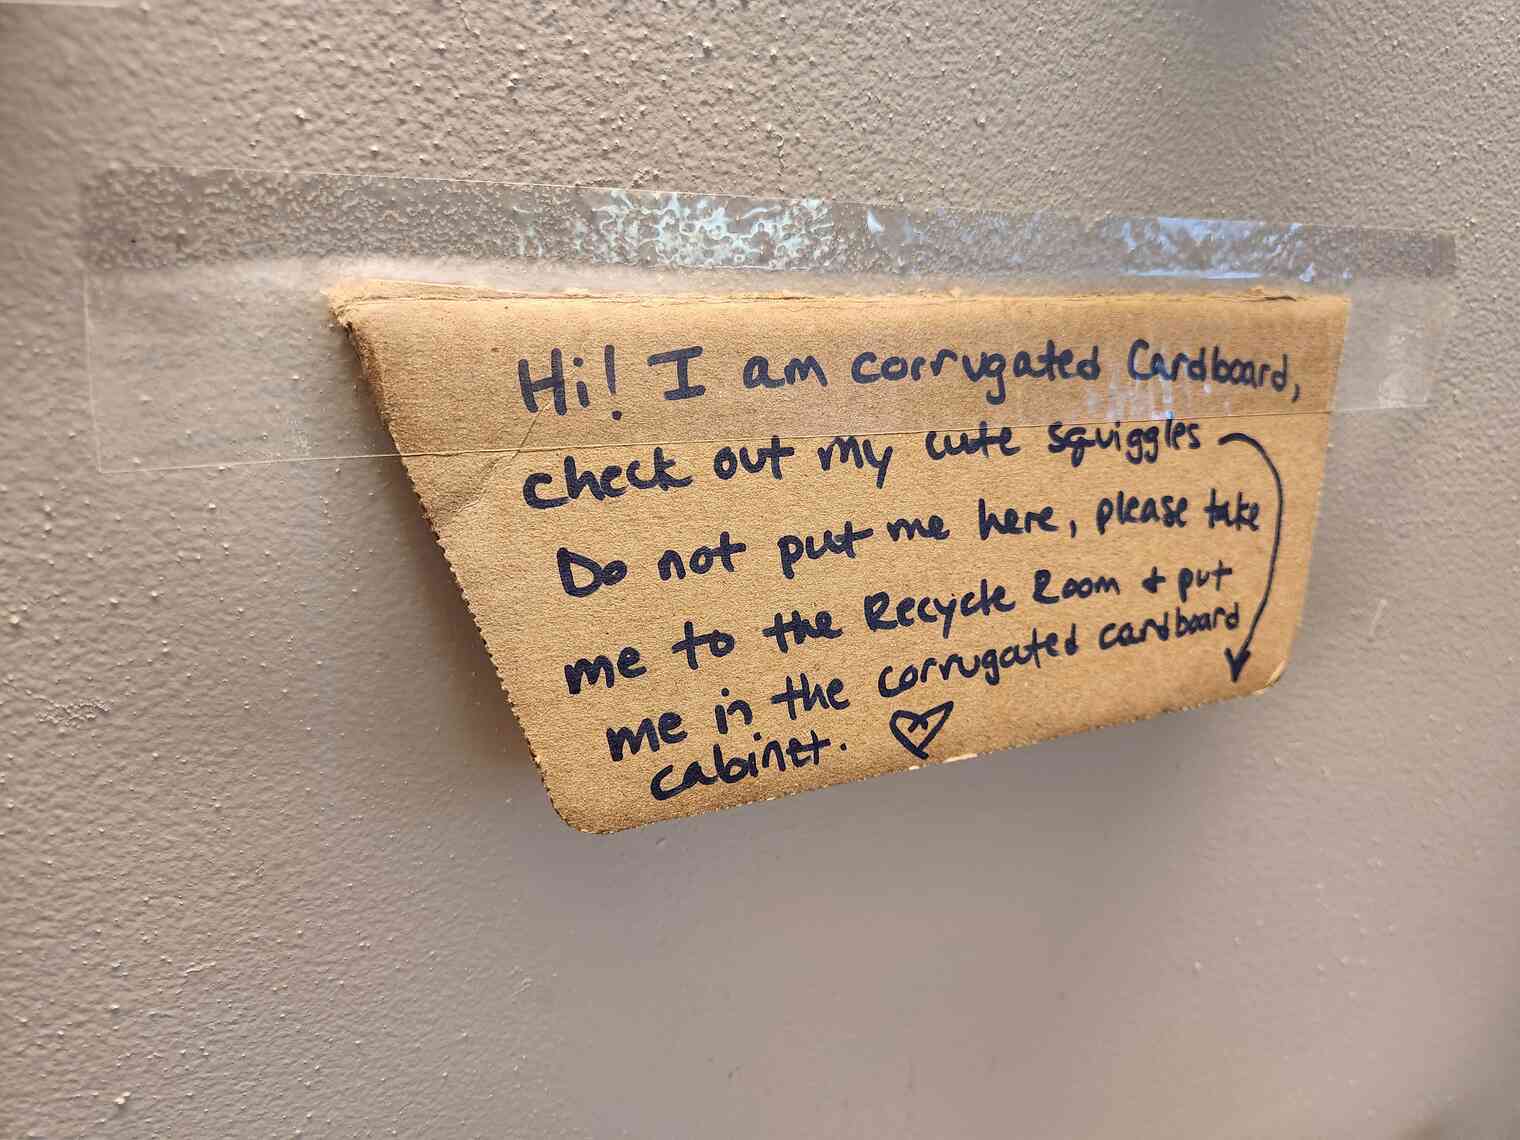 Hi! I am corrugated Cardboard,
check out my cute squiggles
Do not put me here, please take
me to the Recycle Room & put
me in the corrugated cardboard
cabinet.